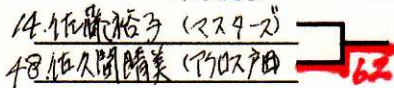 14.佐藤裕子(マスターズ)
48.佐久間晴美(アクロス戸田)
62